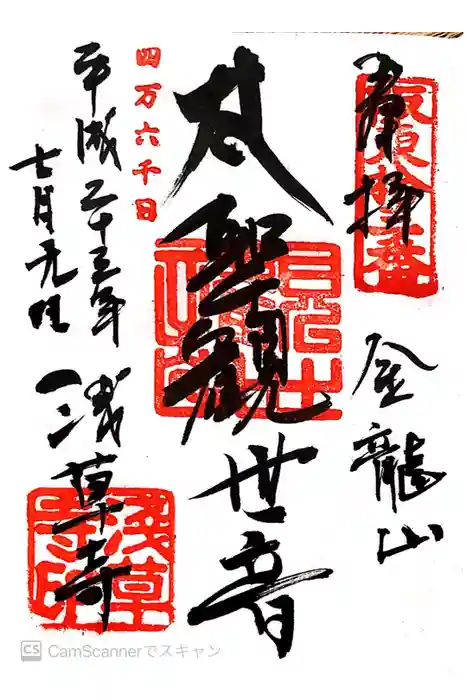 奉拝
坂東拾三番
金龍山
大聖觀世音
四万六千日
平成二十三年
七月九日
浅草寺
淺草寺印
CS CamScannerでスキャン